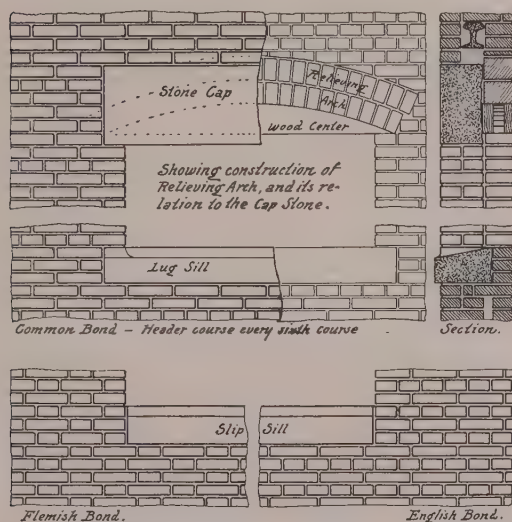 Stone Cap
Relieving
Arch
Wood Center
Showing construction of
Relieving Arch, and its re-
lation to the Cap Stone.
Lug Sill
Common Bond - Header course every sixth course
Section.
Slip Sill
Flemish Bond.
English Bond.